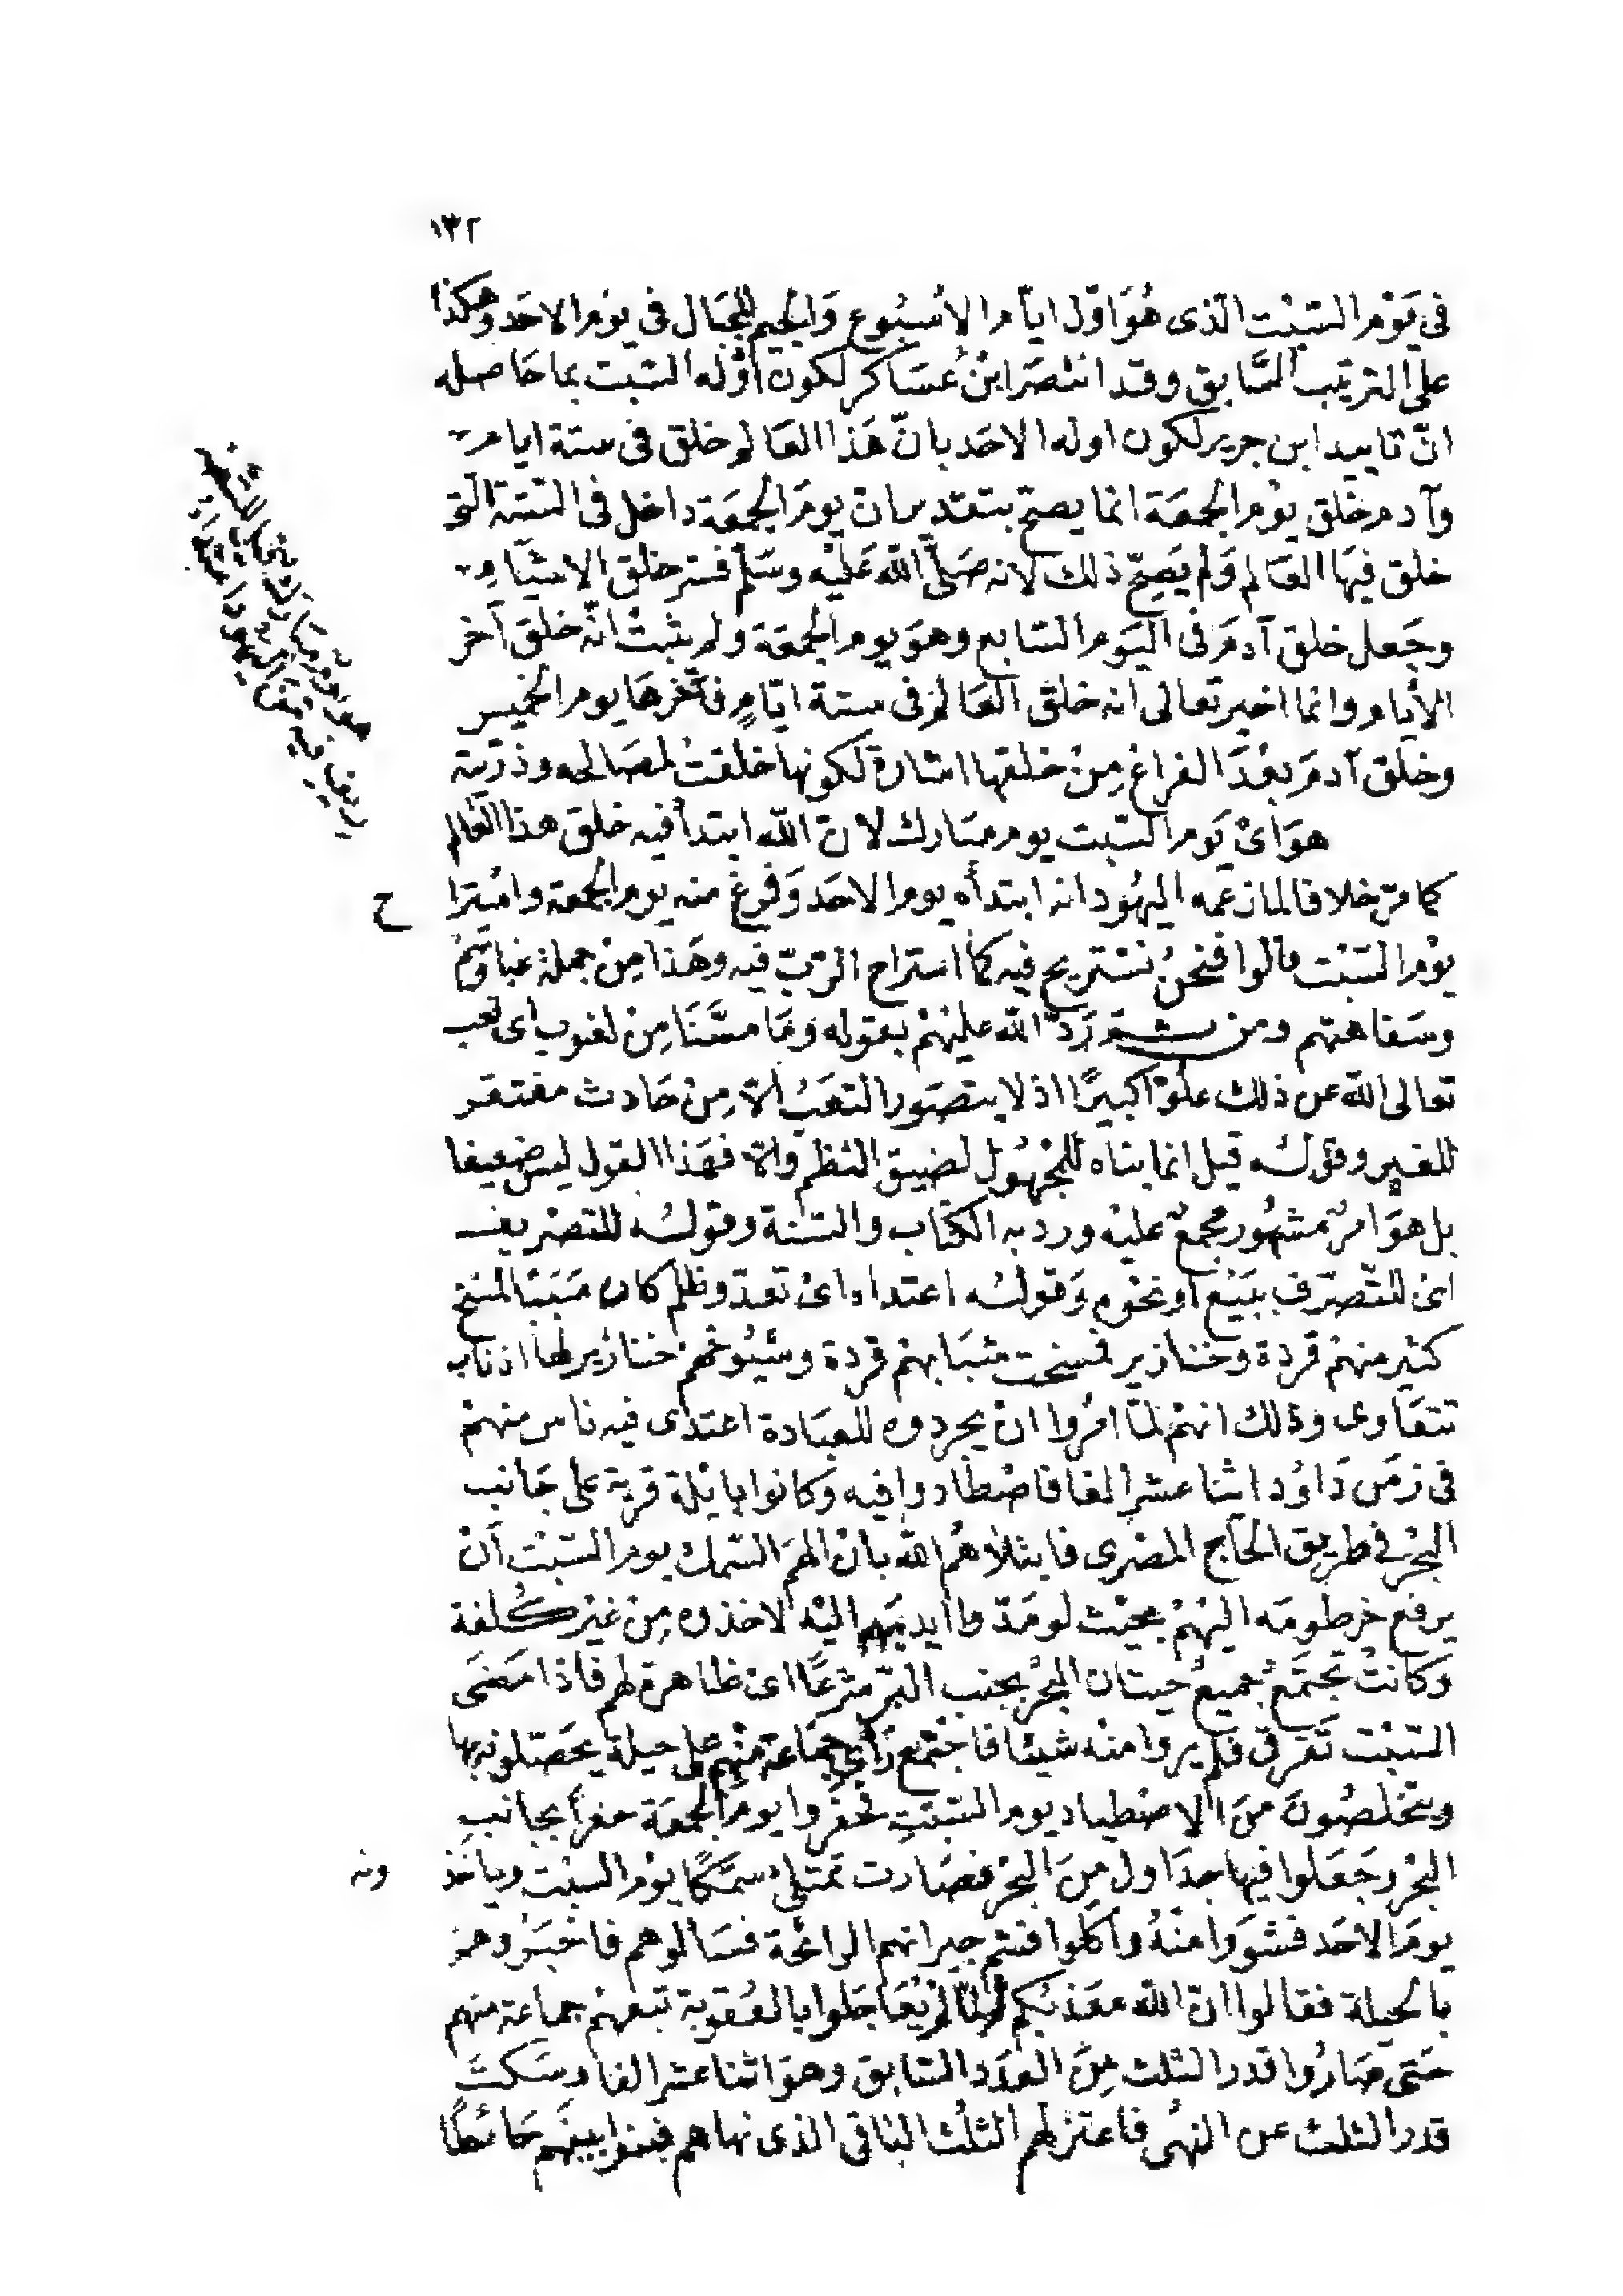 ١٣٢
فى يَوْم السّبْت الّذى هُوَ اوّل ايّام الاُسبُوع وَالجيم للجبَال فى يوْم الاحَد وهكذا
على الترتيب السَّابق وقد انتصَر ابنُ عُسَاكر لكون اوّله السّبت بما حَاصله
انّ تاييد ابن جرير لكون اوله الاحَد بانّ هَذا العَالم خلق فى ستة ايام
وآدم خلق يوْم الجمعَة انما يصحّ بتقدير ان يوْمَ الجمعَة داخل فى الستة التى
خلق فيهَا العَالم وَلم يَصحّ ذلك لانه صَلّى اللّه عَليْه وسَلم فسّر خلق الاشيَآء
وجَعل خلق آدمَ فى اليَوم السّابع وهوَ يوم الجمعَة ولم يثبتْ انّه خلق آخر
الأيام وانما اخبر تعالى انه خلق العَالم فى ستة ايّامٍ فآخرهَا يوم الخميس
وخلق آدمَ بعْدَ الفراغ مِنْ خلقها اشارة لكونها خلقتْ لمصَالحه وذرّيته
هوَ اىْ يَوم السّبت يوم مبَارك لانّ اللّه ابتدأ فيه خلق هذا العَالم
كما مرّ خلافا لما زعمَه اليهُود انه ابتدأه يوم الاحَد وَفرغَ منه يوم الجمعة واسْترا ح
يوْم السّبْت قالوا فنحنُ نسْتريح فيه كما استراح الرّبّ فيه وهَذا مِنْ جملة غباوتهم
وسَفاهتهم ومن ثمّ رَدّ اللّه عليْهمْ بقوله وَمَا مسَّنَا مِنْ لغوب اى تعب
تعالى اللّه عن ذلك علوّا كبيرًا اذ لا يتصَور التعَبُ الّا مِنْ حَادث مفتقر
للغير وقولُه قيل انما بناه للمجْهُول لضيق النظم والّا فهَذا القول ليسَ ضعيفا
بل هوَ امرٌ مشهُور مجمعٌ عليْه ورد به الكتاب والسّنة وقولُه للتصْريف
اىْ للتّصَرّف ببَيْع اوْ نحْوه وَقولُه اعتداء اىْ تعدّ وظلم كان سَبَبًا لمسْخ
كثير منهمْ قردة وخنازير فمسخت شبَابهمْ قردة وشيُوخهم خنازير لها اذناب
تتعَاوى وذلك انهمْ لمّا امرُوا انْ يجردوه للعبَادة اعتدَى فيه ناس منهمْ
فى زمَن دَاوُد اثنا عشر الفا فاصْطادوا فيه وَكانوا بايْلة قريَة على جَانب
البحْر فى طريق الحَاج المصْرى فابتلاهُم اللّه بانْ الهمَ السّمك يوم السّبْت أنْ
يرفع خرطومَه اليْهمْ بحيْث لو مَدّوا ايديَهم اليْه لاخذوه مِنْ غيْر كُلفة
وَكانتْ تجتمَعُ جميعُ حيتان البحْر بجنب البرّ شرعًا اى ظاهرة لهم فاذا مَضَى
السّبْت تَفرق فلم يروا منْه شيئا فاجْتمع رَأى جمَاعة منْهم على حيلة يحَصّلونه بها
ويتخلصُونَ منَ الاصْطياد يوم السّبْتِ فحفرُوا يوم الجمعَة حفرًا بجانبِ
البحْر وجَعَلوا فيها جدَاول مِنَ البحْر فصَارت تمتلئ سمَكًا يوْم السّبْت وياخذ ونه
يومَ الاحَد فشوَوا منْهُ وأكلوا فشم جيرانهم الرائحة فسَالوهم فاخبَرُوهم
بالحيلة فقالوا انّ اللّه معَذبُكم فلمّا لمْ يُعَاجَلوا بالعُقوبة تبعهُمْ جماعة منهم
حَتى صَارُوا قدر الثلث مِنَ العدَد السّابق وهوَ اثنا عشر الفا وسَكتَ
قدر الثلث عن النهْى فاعتزلهم الثلُث البَاقى الذى نهاهم فبنوا بينَهم حَائطًا